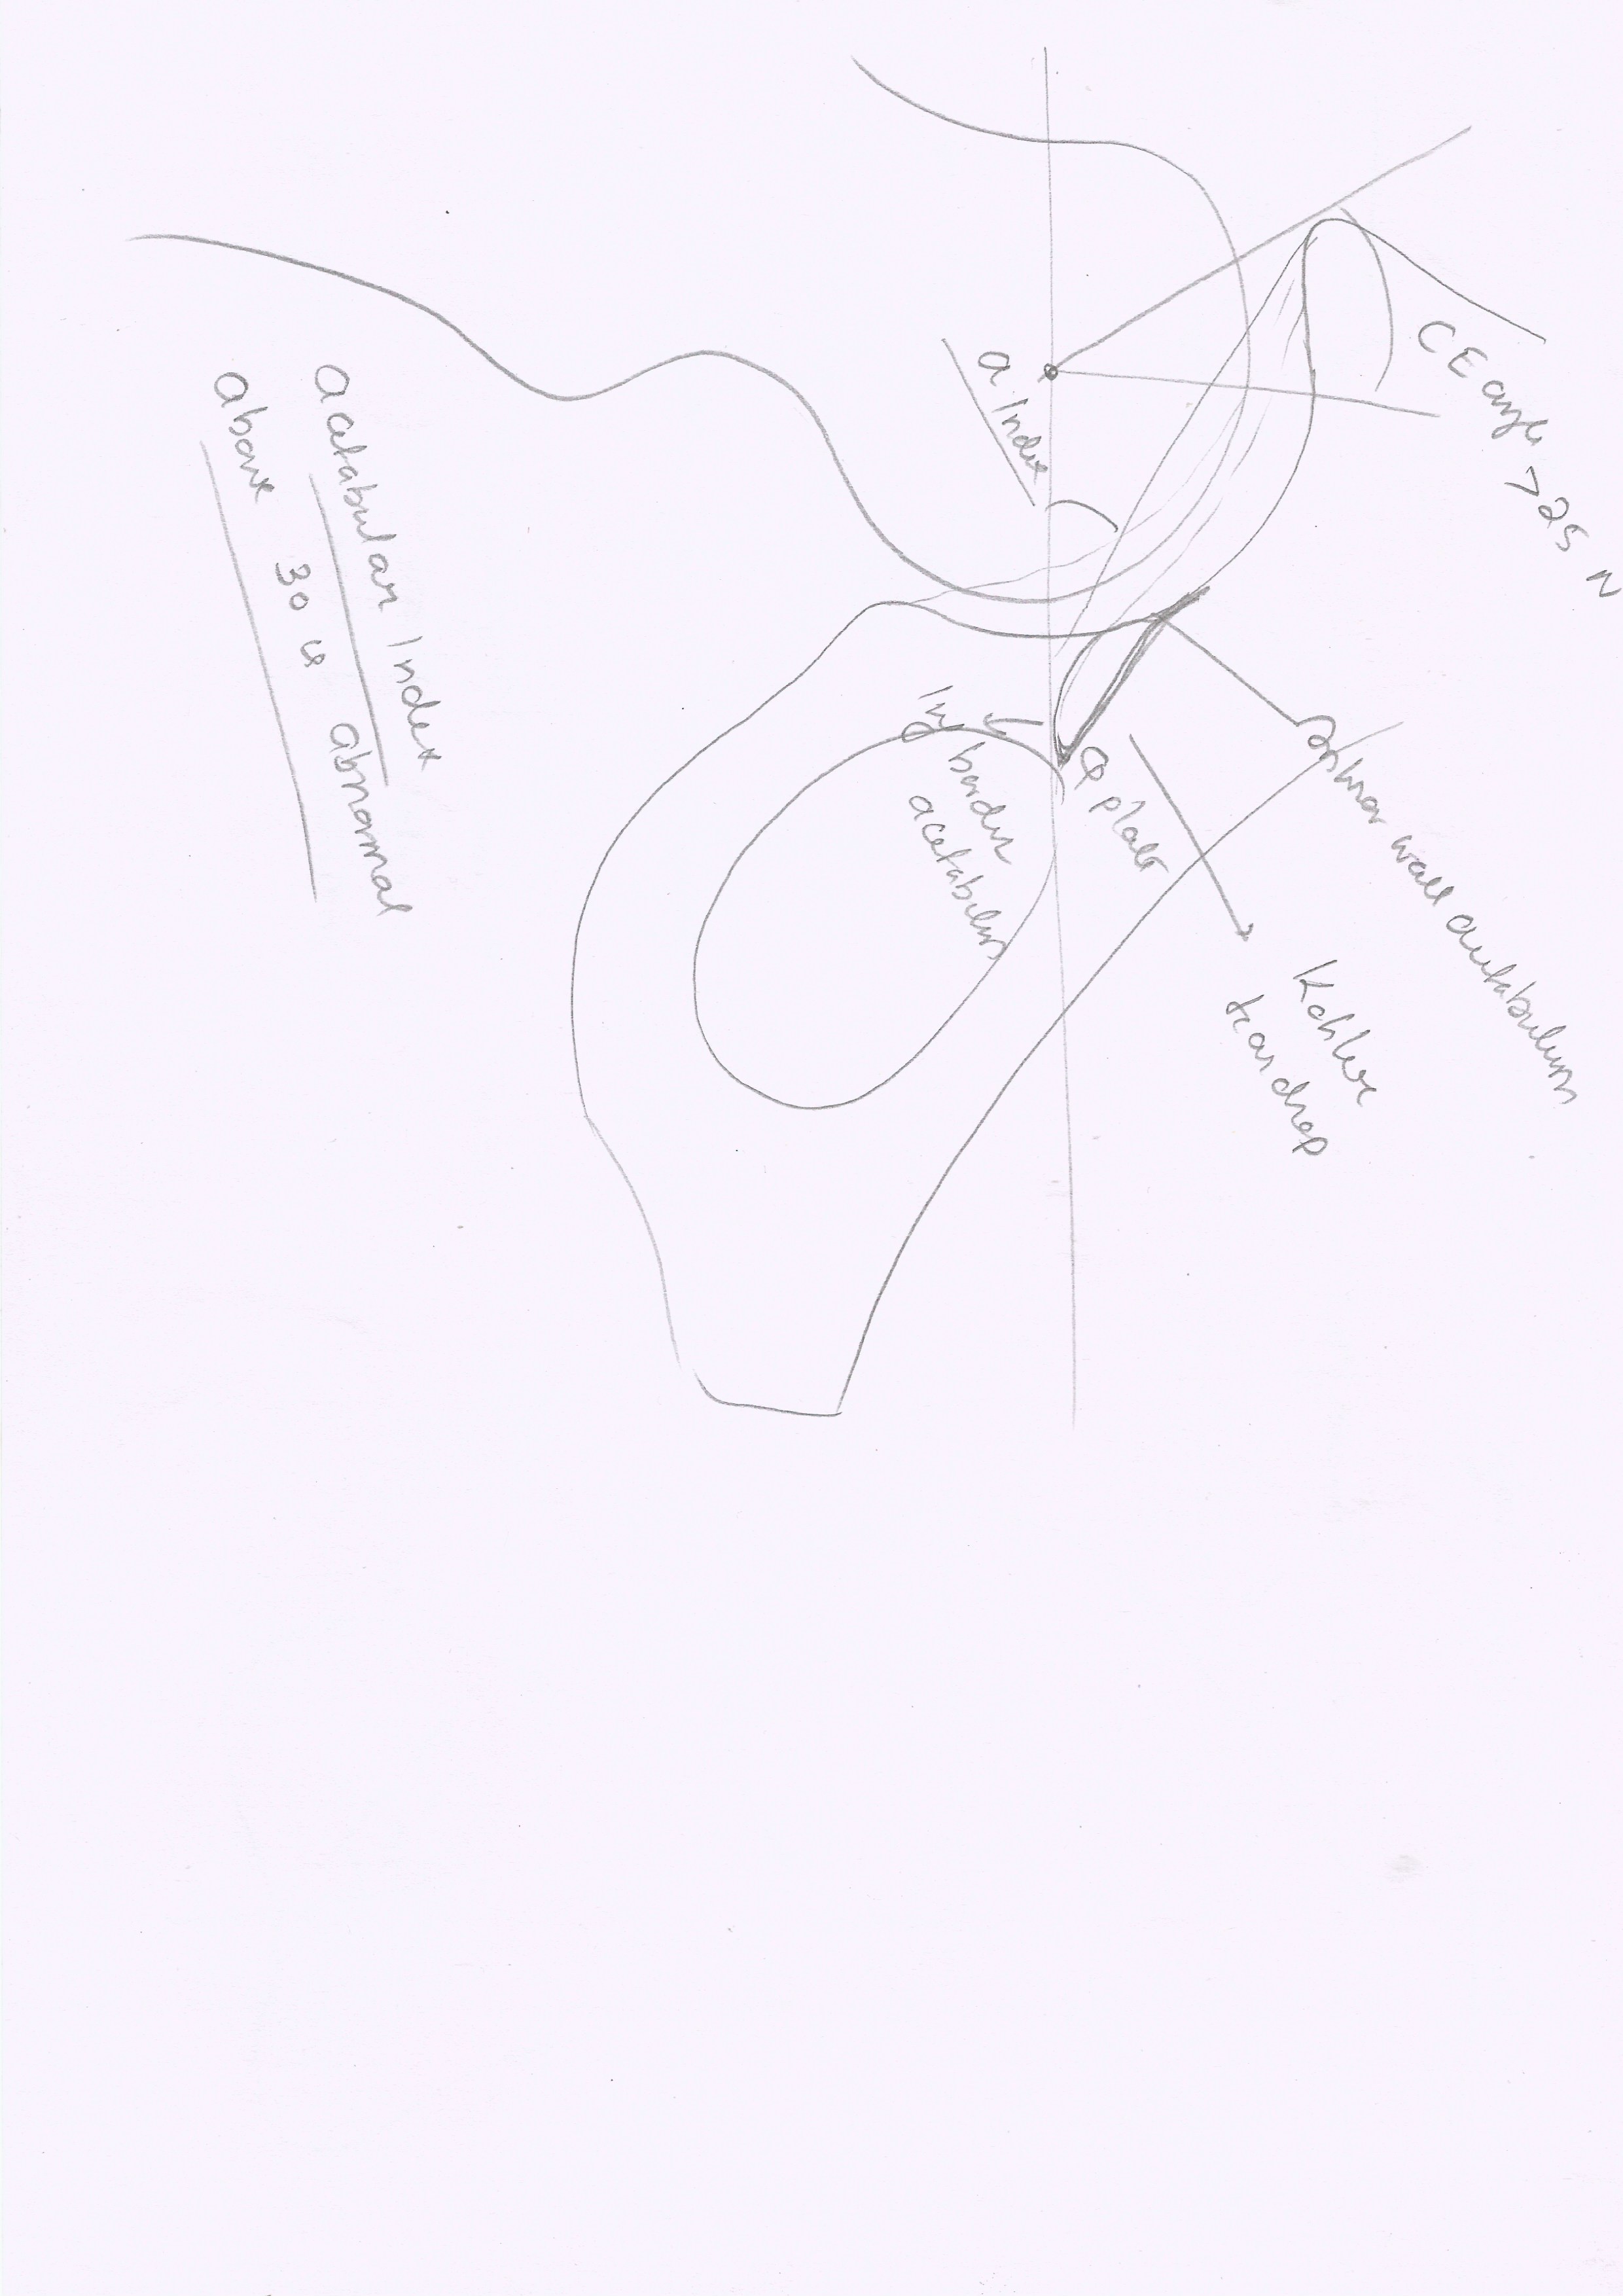 CE angle >25 N
wall acetabulum
Kohler
teardrop
Q plate
a Index
Inf border
acetabulum
Acetabular Index
above 30 is abnormal